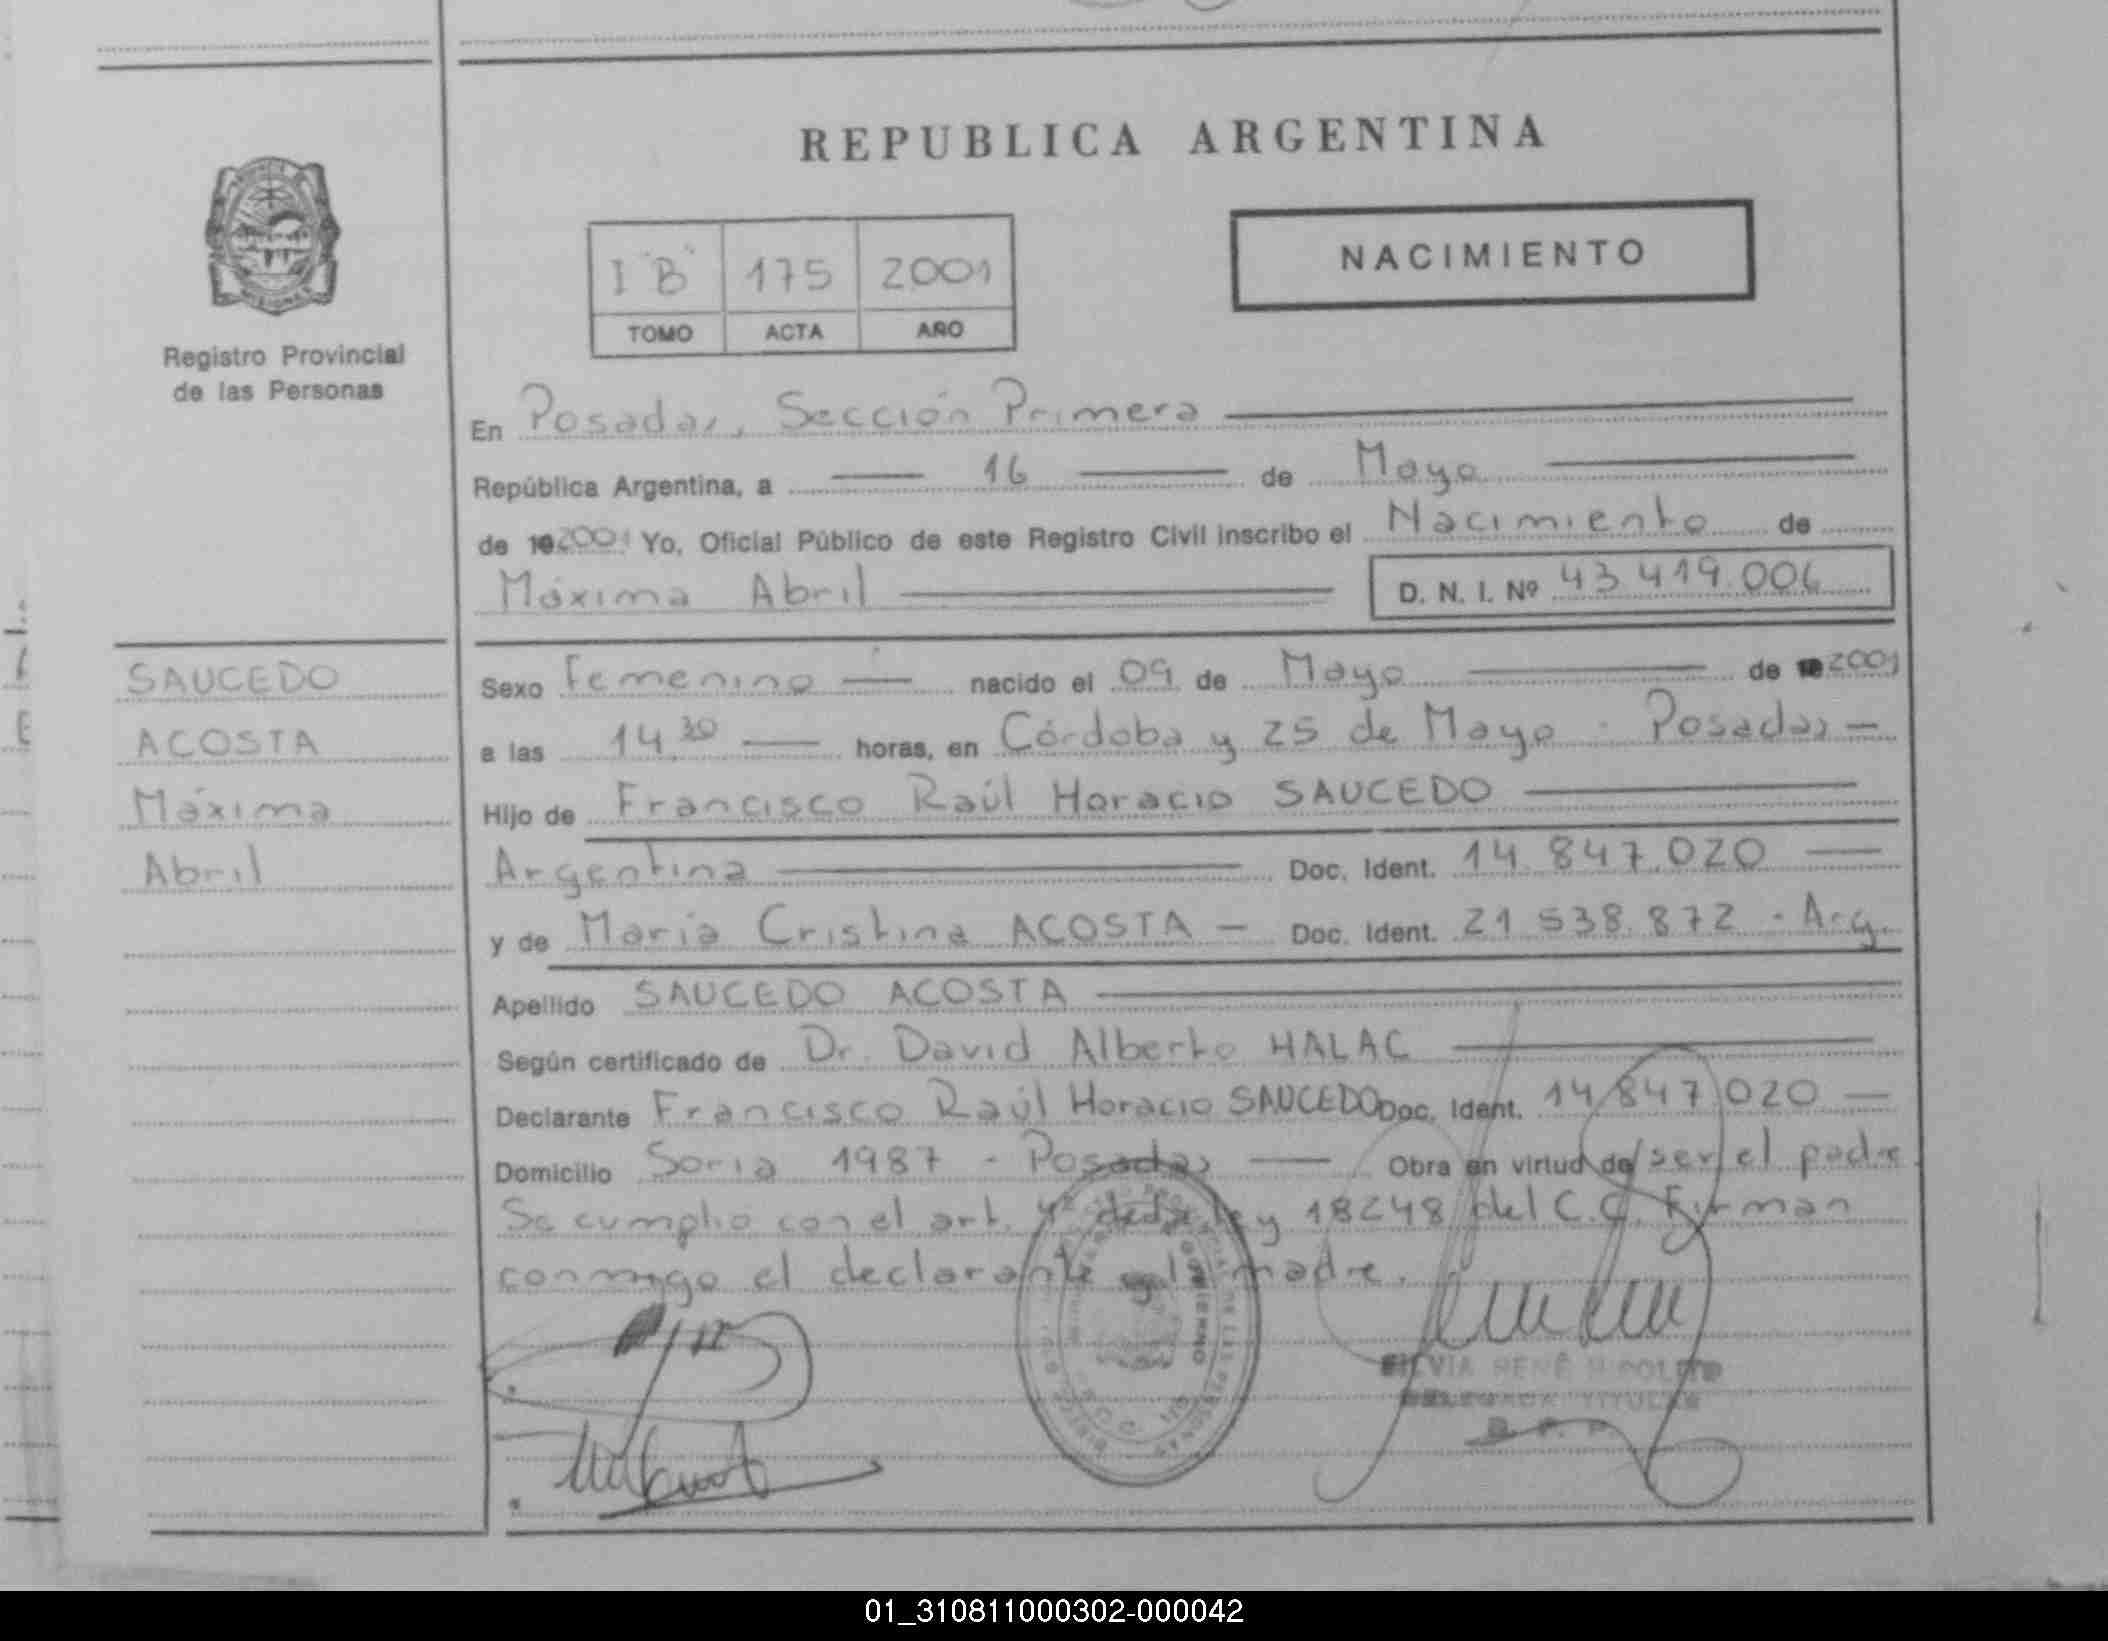 REPUBLICA ARGENTINA
NACIMIENTO
I "B" 175 2001
TOMO ACTA AÑO
Registro Provincial
de las Personas
En Posadas, Sección Primera
República Argentina, a 16 de Mayo
de 192001 Yo, Oficial Público de este Registro Civil inscribo el Nacimiento de
Máxima Abril D. N. I. Nº 43.419.006
SAUCEDO
ACOSTA
Máxima
Abril
Sexo Femenino nacido el 09 de Mayo de 192001
a las 14.30 horas, en Córdoba y 25 de Mayo - Posadas
Hijo de Francisco Raúl Horacio SAUCEDO
Argentina Doc. Ident. 14.847.020
y de María Cristina ACOSTA Doc. Ident. 21.538.872 - Arg.
Apellido SAUCEDO ACOSTA
Según certificado de Dr. David Alberto HALAC
Declarante Francisco Raúl Horacio SAUCEDO Doc. Ident. 14.847.020
Domicilio Soria 1987 - Posadas Obra en virtud de ser el padre
Se cumplió con el art. 4º de la ley 18248 del C.C. Firman
conmigo el declarante y la madre.
SILVIA RENÉ HIPOLITO
DELEGADA TITULAR
R. P. P.
01_310811000302-000042